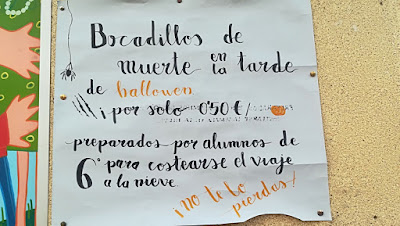 Bocadillos de
muerte en la tarde
de hallowen
¡por solo 0'50 €/
preparados por alumnos de
6º para costearse el viaje
a la nieve
¡no te lo
pierdas!